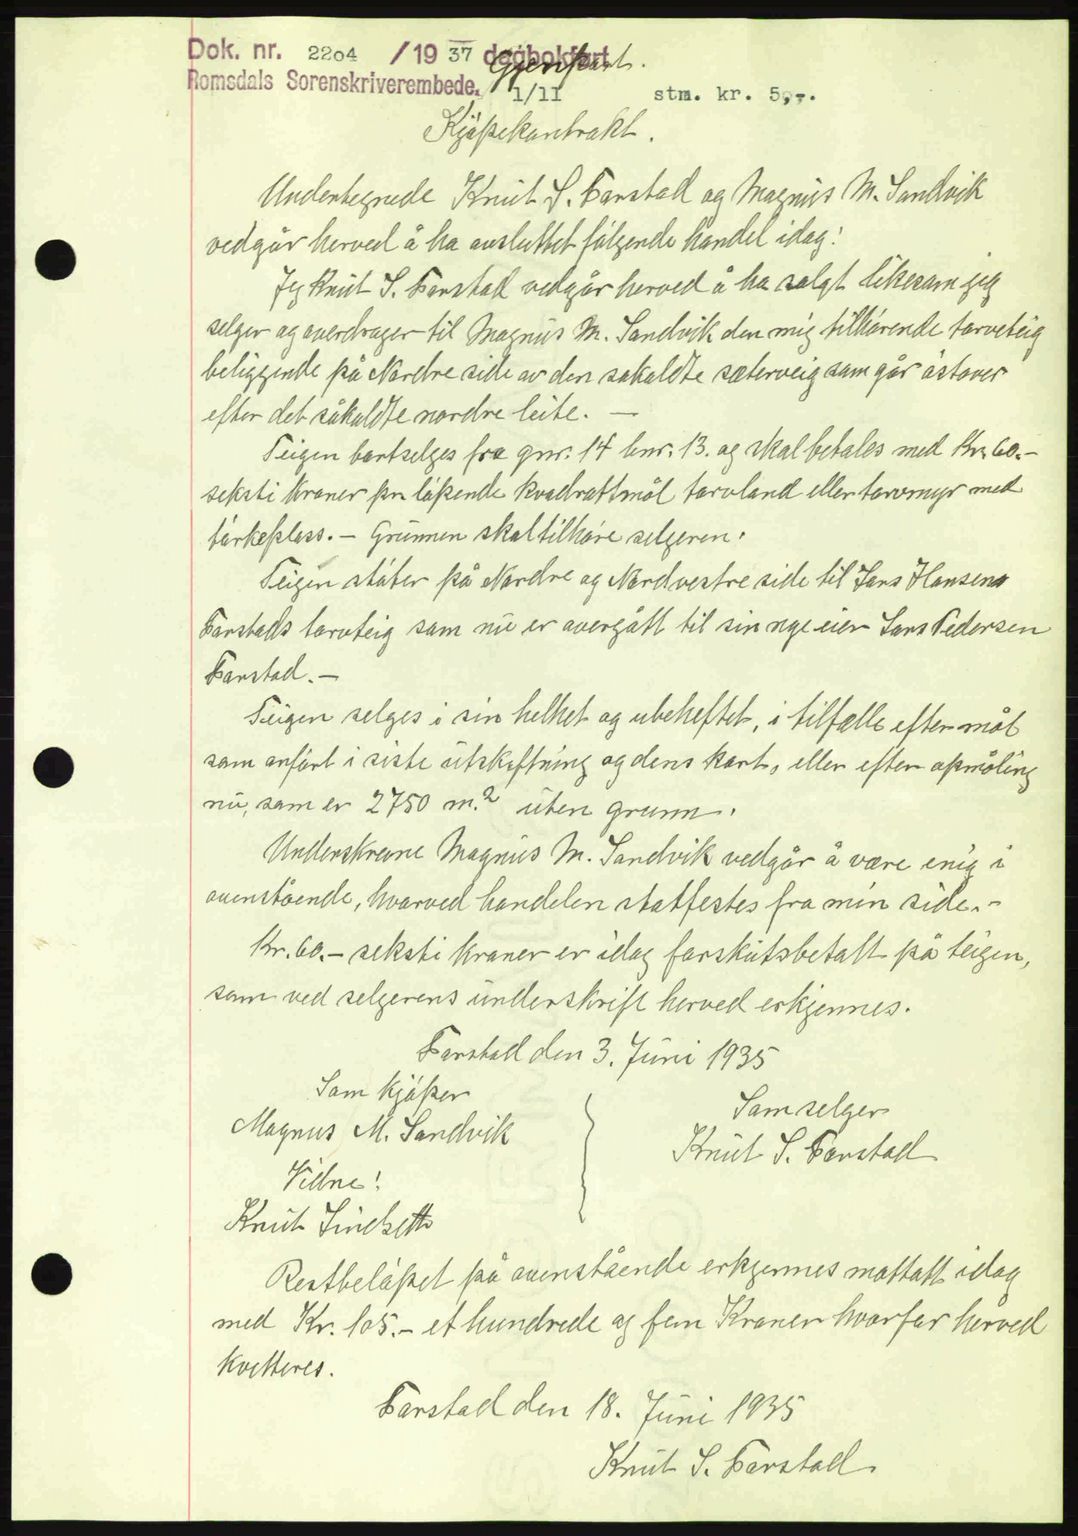 Dok. nr. 2204 /19 37 dagbokført
Gjenpart.
Romsdals Sorenskriverembede. 1/11 stm. kr. 5,-.
Kjøpekontrakt.
Undertegnede Knut S. Farstad og Magnus M. Sandvik
vedgår herved å ha avsluttet følgende handel idag:
Jeg Knut S. Farstad vedgår herved å ha solgt likesom jeg
selger og overdrager til Magnus M. Sandvik den mig tilhørende torvteig
beliggende på Nordre side av den såkaldte sæterveig som går østover
efter det såkaldte nordre leite. —
Teigen bortselges fra gnr. 14 bnr. 13. og skal betales med Kr. 60.-
seksti kroner pr. løpende kvadratmål torvland eller torvmyr med
tørkeplass. — Grunnen skal tilhøre selgeren.
Teigen støter på Nordre og Nordvestre side til Lars Hansens
Farstads torvteig som nu er overgått til sin nye eier Lars Pedersen
Farstad. —
Teigen selges i sin helhet og ubeheftet, i tilfælle efter mål
som anført i siste utskiftning og dens kart, eller efter opmåling
nu, som er 2750 m.² uten grunn.
Underskrevne Magnus M. Sandvik vedgår å være enig i
ovenstående, hvorved handelen statfestes fra min side. -
Kr. 60. - seksti kroner er idag forskutsbetalt på teigen,
som ved selgerens underskrift herved erkjennes.
Farstad den 3. Juni 1935
Som kjøper
Magnus M. Sandvik
Vidne:
Knut Lindseth
Som selger
Knut S. Farstad
Restbeløpet på ovenstående erkjennes mottatt idag
med Kr. 105. - et hundrede og fem Kroner hvorfor herved
kvitteres.
Farstad den 18. Juni 1935
Knut S. Farstad